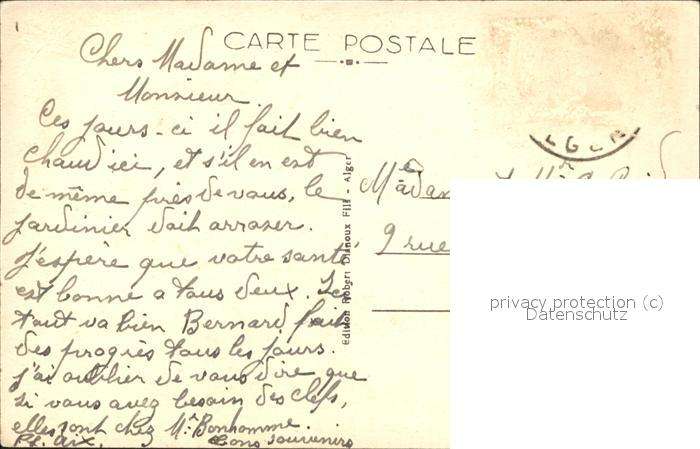 CARTE POSTALE
Chers Madame et
Monsieur
Ces jours-ci il fait bien
chaud ici, et s'il en est
de même près de vous, le
jardinier doit arroser.
J'espère que votre santé
est bonne a tous deux. Ici
tout va bien Bernard fait
des progrès tous les jours.
J'ai oublier de vous dire que
si vous avez besoin des clefs,
elles sont chez Mr Bonhomme.
Bons souvenirs
Edition Robert Dianoux Fils - Alger
ALGER
Madame
9 rue
privacy protection (c)
Datenschutz